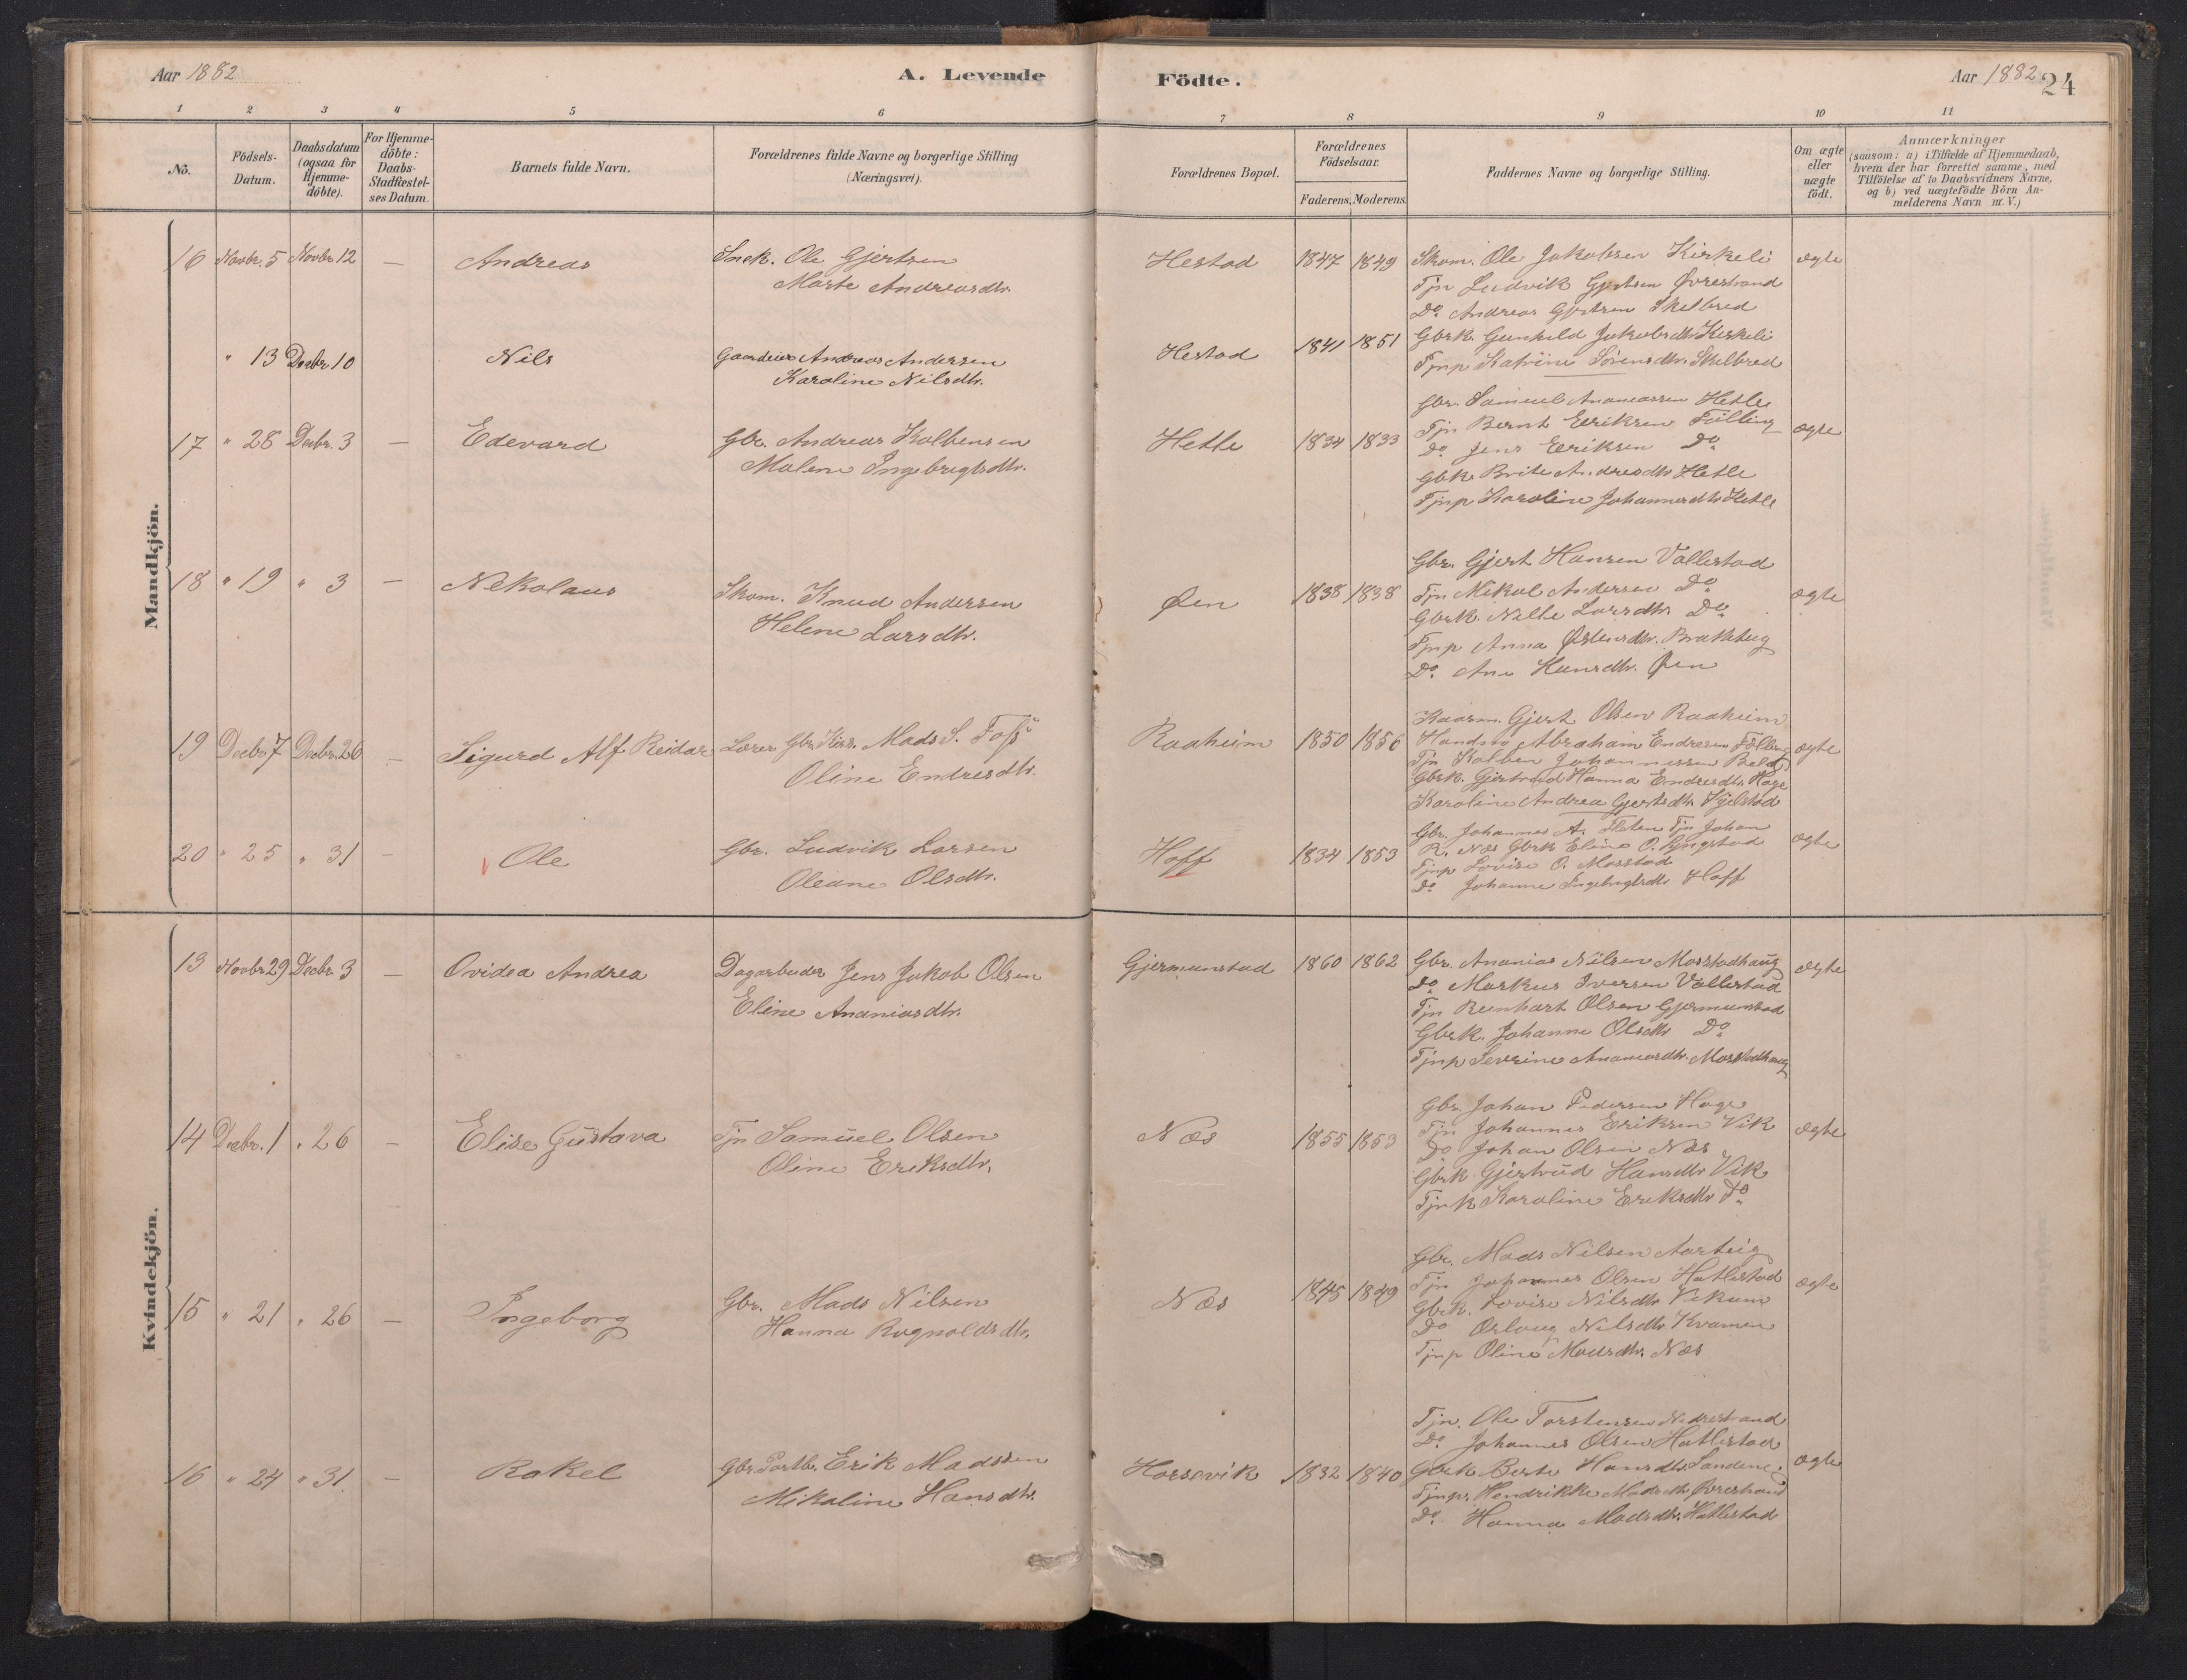 Aar 1882
A. Levende
Födte.
Aar 1882
24
1 2 3 4 5 6 7 8 9 10 11
No.
Födsels-Datum.
Daabsdatum (ogsaa for Hjemme-döbte).
For Hjemme-döbte: Daabs-Stadfæstel-ses Datum.
Barnets fulde Navn.
Forældrenes fulde Navne og borgerlige Stilling (Næringsvei).
Forældrenes Bopæl.
Forældrenes Födselsaar.
Faderens. Moderens.
Faddernes Navne og borgerlige Stilling.
Om ægte eller uægte födt.
Anmærkninger
(saasom: a) i Tilfælde af Hjemmedaab, hvem der har forrettet samme, med Tilföielse af to Daabsvidners Navne, og b) ved uægtefödte Börn Anmelderens Navn m. V.)
Mandkjön.
16 Novbr. 5 Novbr 12 — Andreas
Snek. Ole Gjertsen
Marte Andreasdtr.
Hestad 1847 1849
Skom. Ole Jakobsen Kirkeli
Tjn Ludvik Gjertsen Øvrestrand
Do Andreas Gjertsen Skilbred
Gbrk. Gunhild Jakobsdtr Kirkeli
Tjnp Katrine Sörensdtr. Skilbred
ægte
" 13 Decbr 10 Nils
Andreas Andersen
Karoline Nilsdtr.
Hestad 1841 1851
17 " 28 Decbr. 3 — Edevard
Gbr. Andreas Kolbensen
Malene Ingebrigtsdtr.
Hetle 1834 1833
Gbr. Samuel Ananiassen Hetle
Tjn Bernt Eeriksen Fölling
Do Jens Eeriksen Do
Gbk Brite Andresdtr Hetle
Tjnp Karoline Johannesdtr Hetle
ægte
18 " 19 " 3 — Nekolaus
Skom. Knud Andersen
Helene Larsdtr.
Øen 1838 1838
Gbr. Gjert Hansen Vallestad
Tjn Mikal Andersen Do
Gbrk. Nille Larsdtr Do
Tjnp Anna Østensdtr.
Do. Ane Hansdtr. Øen
ægte
19 Decbr 7 Decbr. 26 — Sigurd Alf Reidar
Lærer Gbr Kirs. Mads S. Foss
Oline Endresdtr.
Raaheim 1850 1856
Gjert Olsen Raaheim
Abraham Endresen Fölling
Tjn Kolben Johannessen
Gbrk. Gjertrud Hanna Endresdtr. Hage
Karoline Andrea Gjertsdtr.
ægte
20 " 25 " 31 — Ole
Gbr. Ludvik Larsen
Oleane Olsdtr.
Hoff 1834 1853
Gbr. Johannes A. Flaten Tjn Johan
R. Næs Gbrk Eline O.
Tjnp Lovise O. Masstad
Do Johanne Ingebrigtsdtr Hoff
ægte
Kvindekjön.
13 Novbr 29 Decbr. 3 — Ovidea Andrea
Dagarbeider Jens Jakob Olsen
Eline Ananiasdtr.
Gjermunstad 1860 1862
Gbr. Ananias Nilsen Masstadhaug
Do Markus Iversen Vallestad
Tjn Reinhart Olsen Gjermunstad
Gbrk. Johanne Olsdtr Do
Tjnp Severine Ananiasdtr. Masstadhaug
ægte
14 Decbr. 1 " 26 — Elise Gustava
Tjn Samuel Olsen
Oline Eriksdtr.
Næs 1855 1853
Gbr. Johan Pedersen Hage
Tjn Johannes Eriksen Vik
Do Johan Olsen Næs
Gbrk Gjertrud Hansdtr Vik
Tjnk Karoline Eriksdtr Do
ægte
15 " 21 " 26 — Ingeborg
Gbr. Mads Nilsen
Hanna Rognaldsdtr.
Næs 1845 1849
Gbr. Mads Nilsen Aarteig
Tjn Johannes Olsen Hatlestad
Gbrk. Lovise Nilsdtr
Do Nilsdtr Kvamen
Tjnp Oline Madsdtr. Næs
ægte
16 " 24 " 31 — Rakel
Gbr. Erik Madssen
Mikaline Hansdtr.
Horsevik 1832 1840
Tjn. Ole Torstensen Nedrestrand
Do. Johannes Olsen Hatlestad
Gbrk Berte Hansdtr. Sandene
Tjnp. Hendrikke Madsdtr. Øvrestrand
Do. Hanna Madsdtr. Hatlestad
ægte